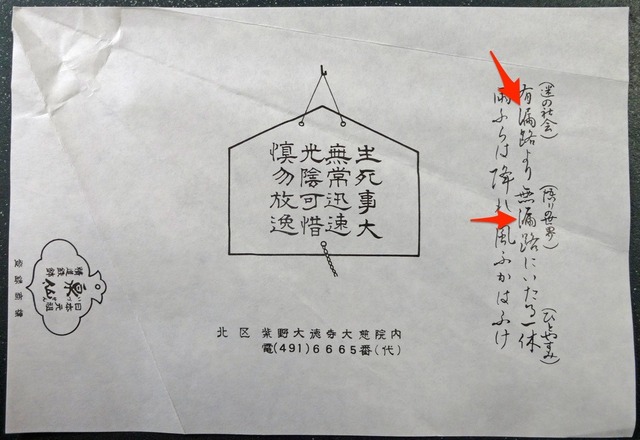 (迷の社会)
(悟り世界)
(ひとやすみ)
有漏路より無漏路にいたる一休
雨ふらは降れ風ふかはふけ
生死事大
無常迅速
光陰可惜
慎勿放逸
北区 紫野大徳寺大慈院内
電(491)6665番(代)
日本元祖
泉仙
精進鉄鉢
登録商標